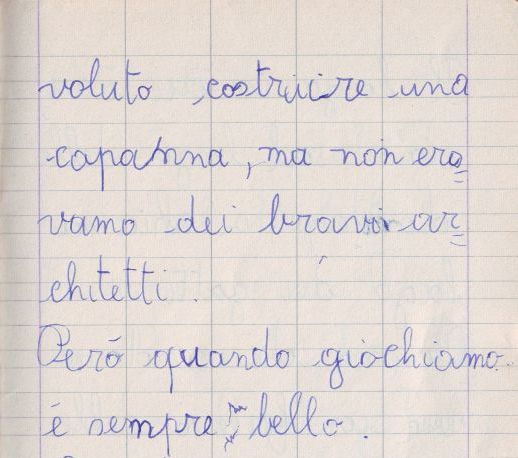 voluto costruire una
capanna, ma non era=
vamo dei bravi ar=
chitetti.
Però quando giochiamo
é sempre bello.